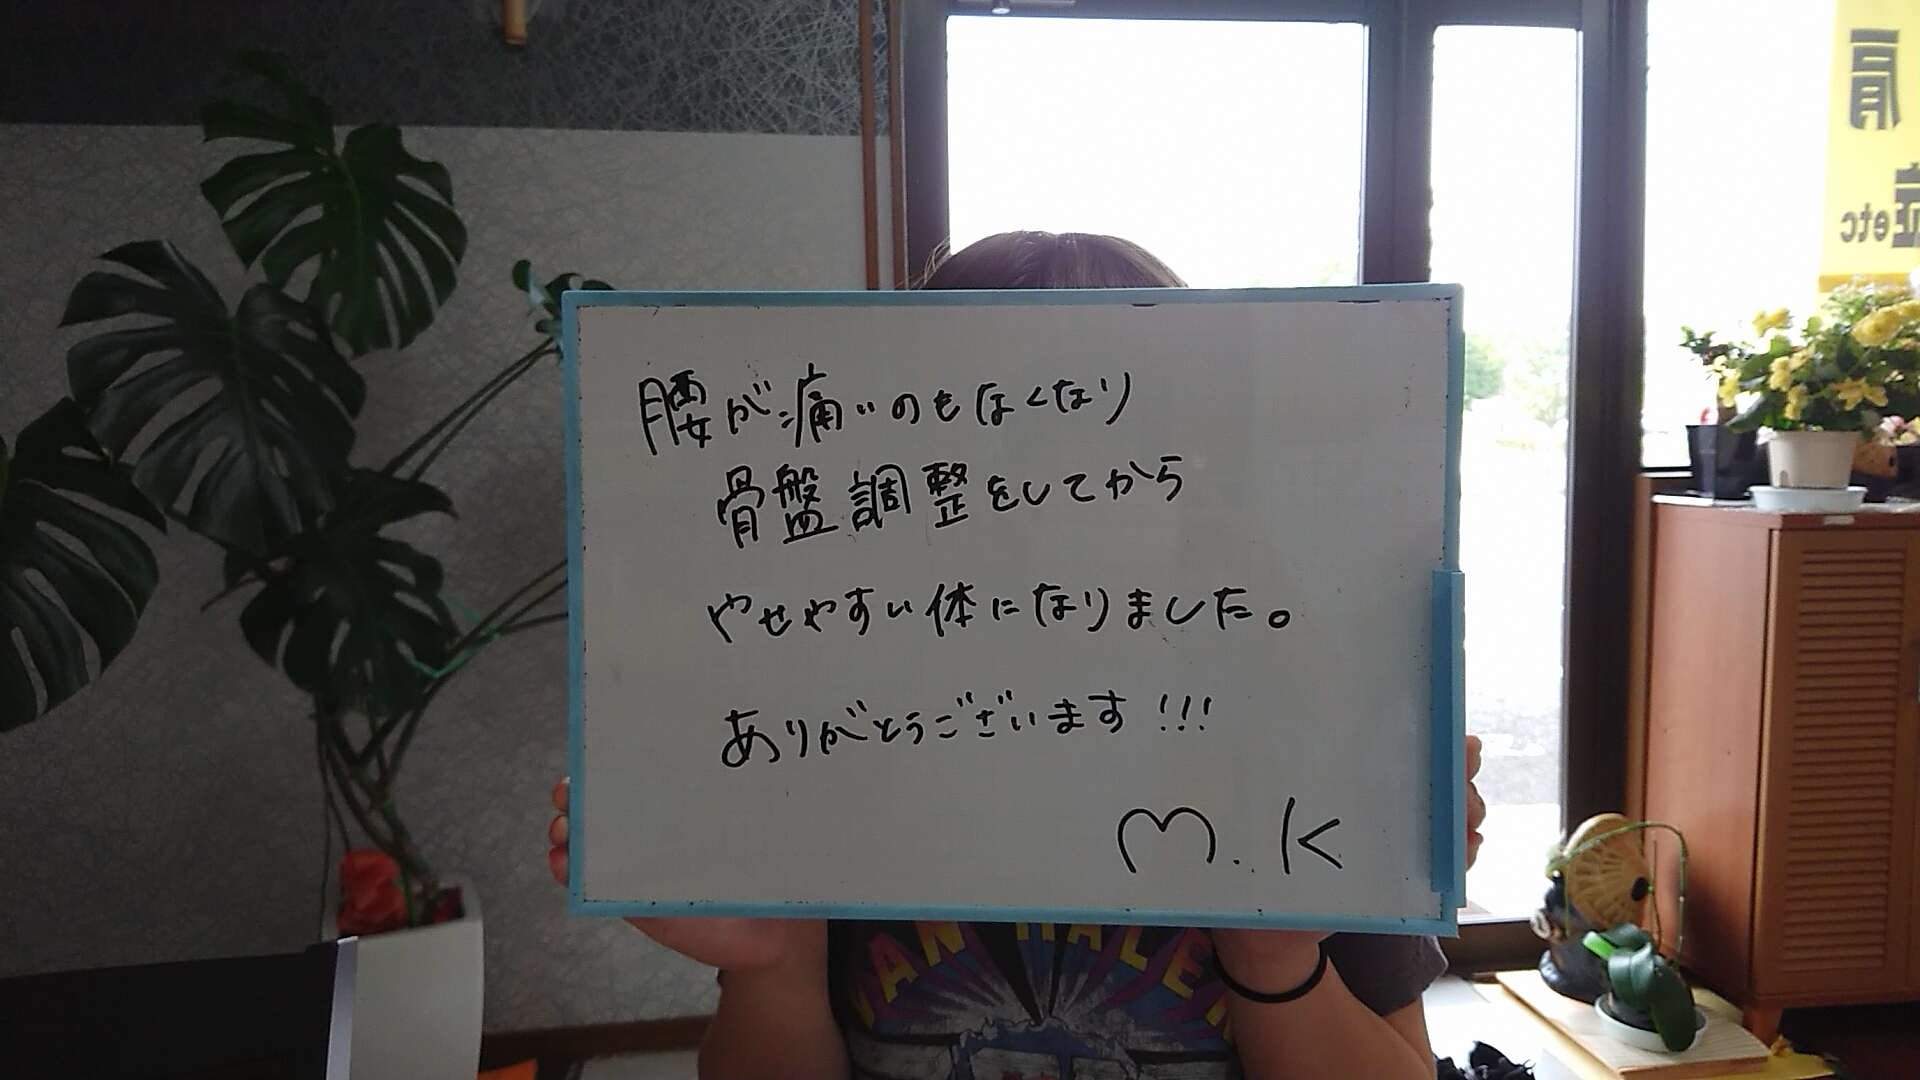 腰が痛いのもなくなり
骨盤調整をしてから
やせやすい体になりました。
ありがとうございます!!!
M.K
肩
症etc
VAN HALEN